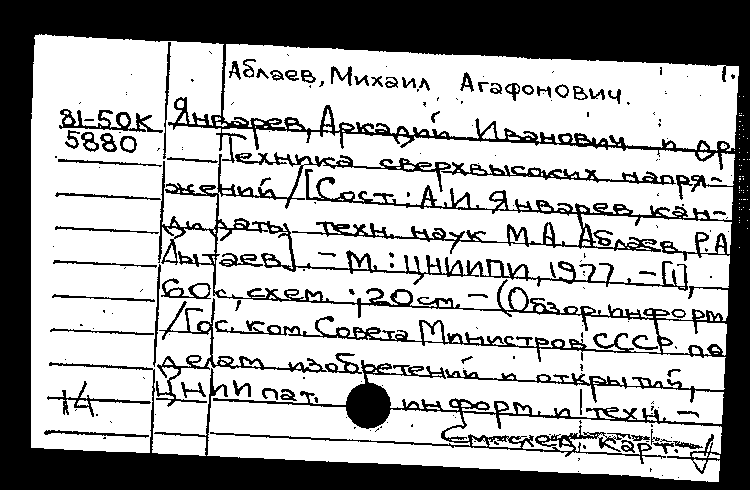 1.
Аблаев, Михаил Агафонович.
81-50К Январев, Аркадий Иванович и др.
5880 Техника сверхвысоких напря-
жений /[Сост.: А.И. Январев, кан-
дидаты техн. наук М.А. Аблаев, Р.А
Дытаев]. - М. : ЦНИИПИ, 1977. - [1],
60с., схем. ; 20см. - (Обзор. информ.
/Гос. ком. Совета Министров СССР по
делам изобретений и открытий,
14 ЦНИИ пат. информ. и техн. -
См. след. карт.